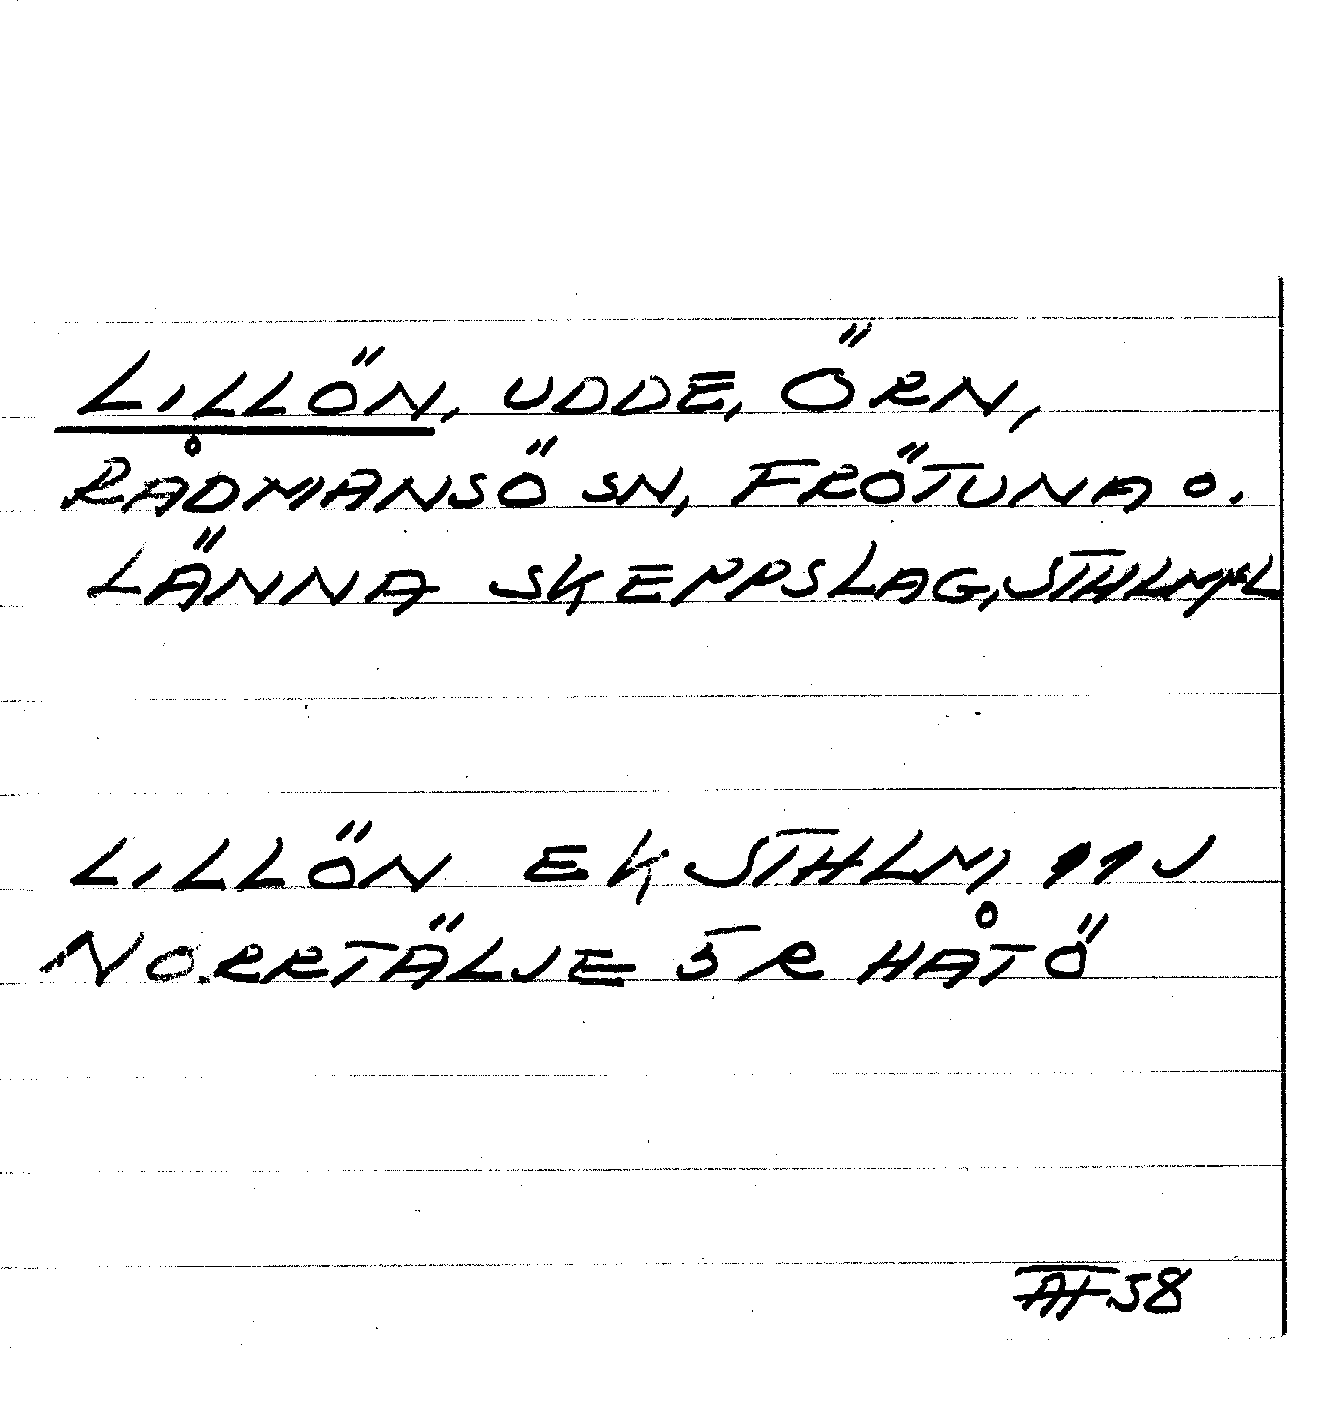 LILLÖN, UDDE, ÖRN,
RÅDMANSÖ SN, FRÖTUNA O.
LÄNNA SKEPPSLAG, STHLMSL
LILLÖN EK STHLM, 11J
NORRTÄLJE 5R HÅTÖ
58